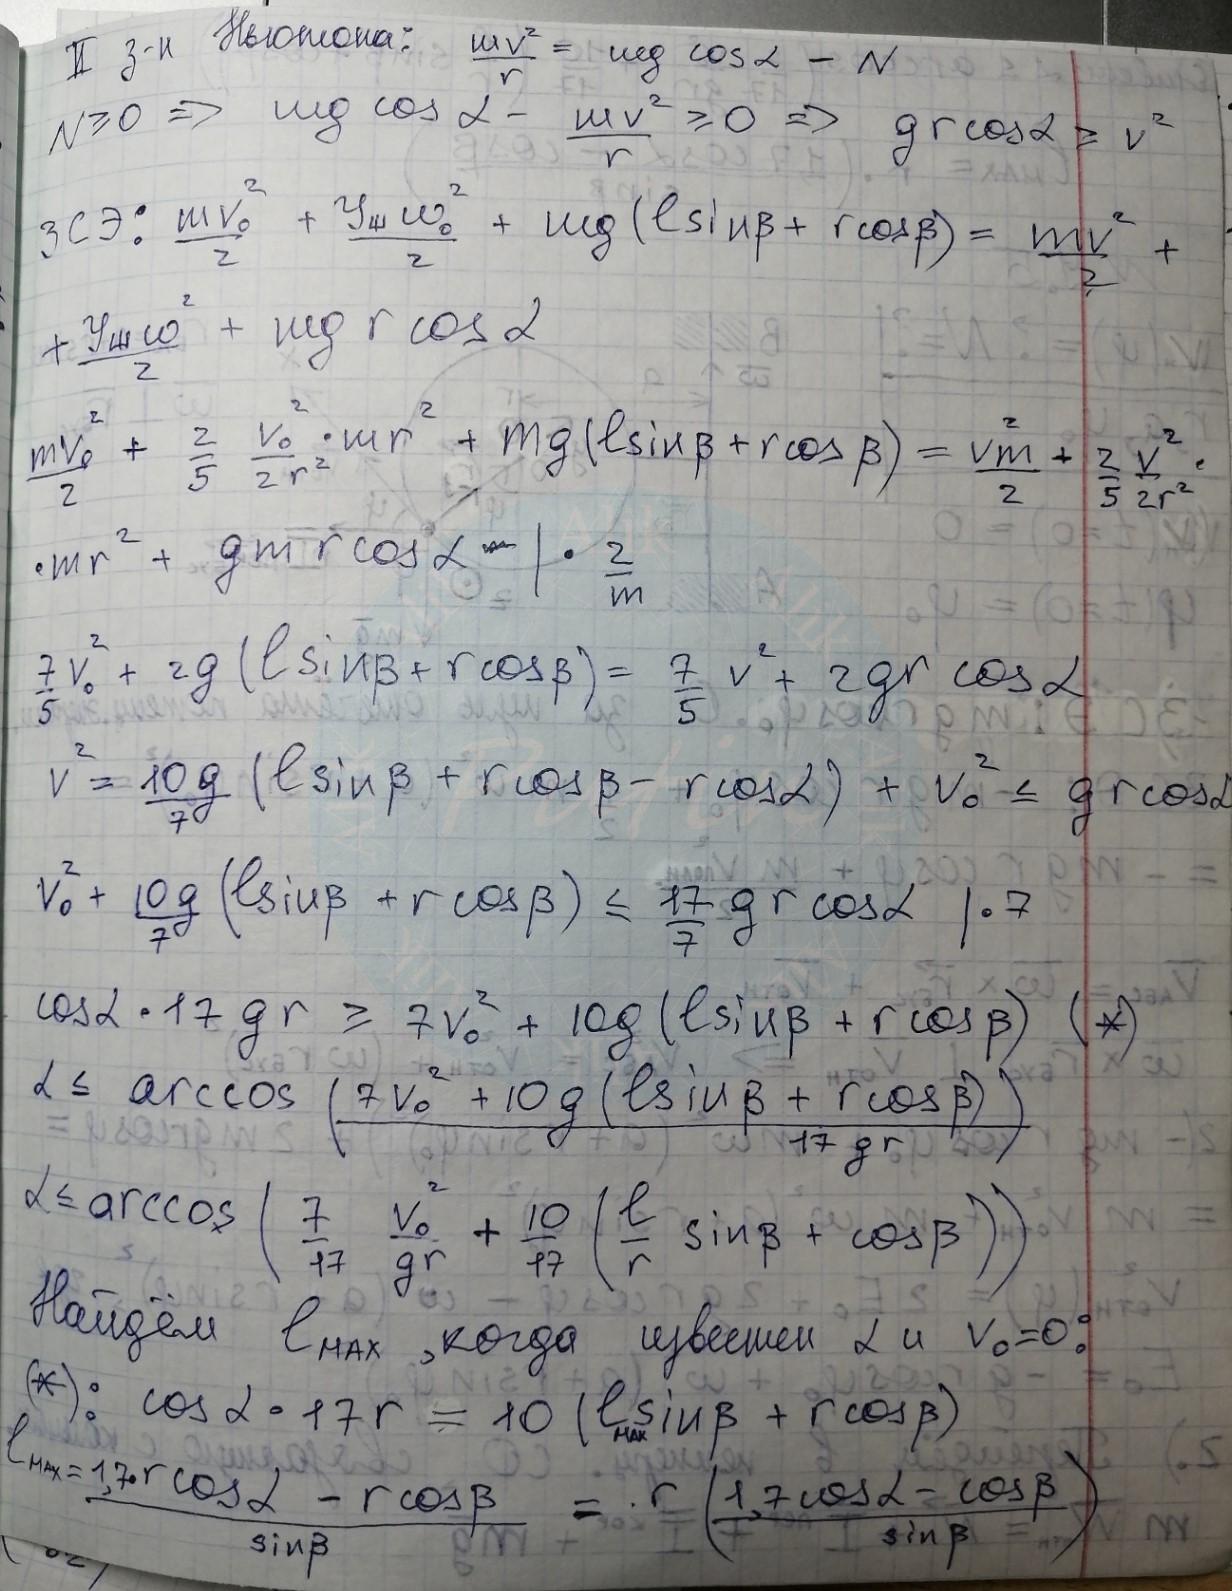 II з-н Ньютона: mv²/r = mg cosα − N
N≥0 => mg cosα − mv²/r ≥ 0 => gr cosα ≥ v²
ЗСЭ: mv₀²/2 + Jшω₀²/2 + mg(l sinβ + r cosβ) = mv²/2 +
+ Jшω²/2 + mg r cosα
mv₀²/2 + 2/5 v₀²/2r² · mr² + mg(l sinβ + r cosβ) = v²m/2 + 2/5 v²/2r² ·
· mr² + gmr cosα | · 2/m
7/5 v₀² + 2g(l sinβ + r cosβ) = 7/5 v² + 2gr cosα
v² = 10g/7 (l sinβ + r cosβ − r cosα) + v₀² ≤ gr cosα
v₀² + 10g/7 (l sinβ + r cosβ) ≤ 17/7 gr cosα | · 7
cosα · 17gr ≥ 7v₀² + 10g(l sinβ + r cosβ) (*)
α ≤ arccos (7v₀² + 10g(l sinβ + r cosβ) / 17gr)
α ≤ arccos (7/17 v₀²/gr + 10/17 (l/r sinβ + cosβ))
Найдём lмах, когда известен α и v₀=0:
(*): cosα · 17r = 10(lмах sinβ + r cosβ)
lмах = 1,7·r cosα − r cosβ / sinβ = r (1,7cosα − cosβ / sinβ)